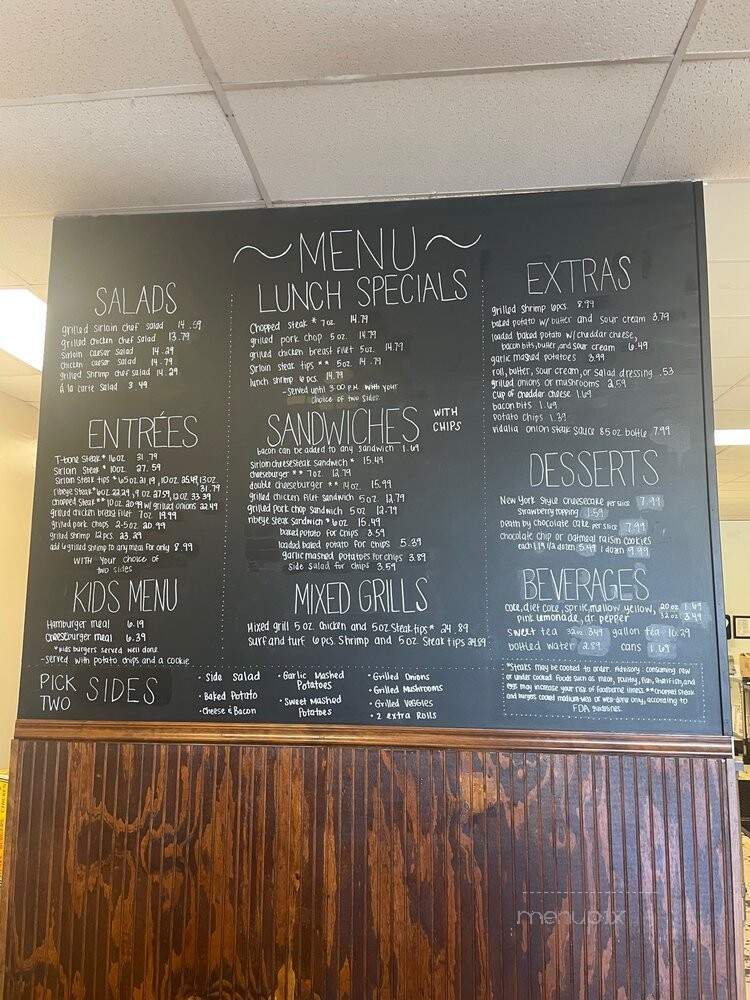 ~MENU~
SALADS
grilled sirloin chef salad 14.59
grilled chicken chef salad 13.79
Sirloin caesar Salad 14.29
Chicken caesar Salad 14.79
grilled Shrimp chef salad 14.29
á la carte Salad 3.49
ENTRÉES
T-bone steak * 16 oz 31.79
Sirloin Steak * 10oz. 27.59
ribeye steak * 6oz. 22.29, 9 oz. 27.59, 12oz 33.39
31.79
chopped steak ** 10 oz 20.99 w/ grilled onions 22.49
grilled chicken breast filet 7oz 19.99
grilled pork chops 2-5oz 20.99
grilled shrimp 12 pcs. 23.29
add 6 grilled shrimp to any meal for only 8.99
WITH YOUR Choice of
two sides
KIDS MENU
Hamburger meal 6.19
Cheeseburger meal 6.39
*kids burgers served well done
-served with potato chips and a cookie
LUNCH SPECIALS
Chopped steak * 7oz 14.79
grilled pork chop 5 oz. 14.79
grilled chicken breast filet 5oz. 14.79
Sirloin steak tips ** 5oz 14.79
lunch shrimp 6 pcs. 14.79
-served until 3:00 P.M. with your
choice of two Sides.
SANDWICHES WITH
CHIPS
bacon can be added to any sandwich 1.69
Sirloin cheese steak Sandwich * 15.49
cheeseburger ** 7oz 12.79
double cheeseburger ** 14oz. 15.99
grilled chicken filet sandwich 5oz 12.79
grilled pork chop Sandwich 5oz 12.79
ribeye steak Sandwich * 6oz 15.49
baked potato for chips 3.59
loaded baked potato for chips 5.39
garlic mashed potatoes for chips 3.89
Side Salad for chips 3.59
MIXED GRILLS
Mixed grill 5 oz. chicken and 5oz Steak tips * 24.89
surf and turf 6 pcs. Shrimp and 5oz Steak tips 24.89
EXTRAS
grilled shrimp 6pcs. 8.99
baked potato w/ butter and sour cream 3.79
loaded baked potato w/ cheddar cheese,
bacon bits, butter, and sour cream 6.49
garlic mashed potatoes 3.99
roll, butter, sour cream, or salad dressing .53
grilled onions or mushrooms 2.59
cup of cheddar cheese 1.69
bacon bits 1.69
potato chips 1.39
vidalia onion steak sauce 8.5 oz bottle 7.99
DESSERTS
New York Style cheesecake per slice 7.99
Strawberry topping 1.59
Death by chocolate cake per slice 7.99
chocolate chip or oatmeal raisin cookies
each 1.19 1/2 dozen 5.49 1 dozen 9.99
BEVERAGES
coke, diet coke, sprite, mellow yellow, 20oz 1.69
pink lemonade, dr pepper 32oz 3.49
sweet tea 32oz 3.49 gallon tea 16.29
bottled water 2.59 cans 1.69
*Steaks may be cooked to order. Advisory: consuming raw
or under cooked foods such as meat, poultry, fish, shellfish, and
eggs may increase your risk of foodborne illness. **chopped steak
and burgers cooked medium-well or well-done only, according to
FDA guidelines.
PICK TWO SIDES
• Side Salad
• Baked Potato
• Cheese & Bacon
• Garlic Mashed
Potatoes
• Sweet Mashed
Potatoes
• Grilled Onions
• Grilled Mushrooms
• Grilled Veggies
• 2 extra Rolls
menupix